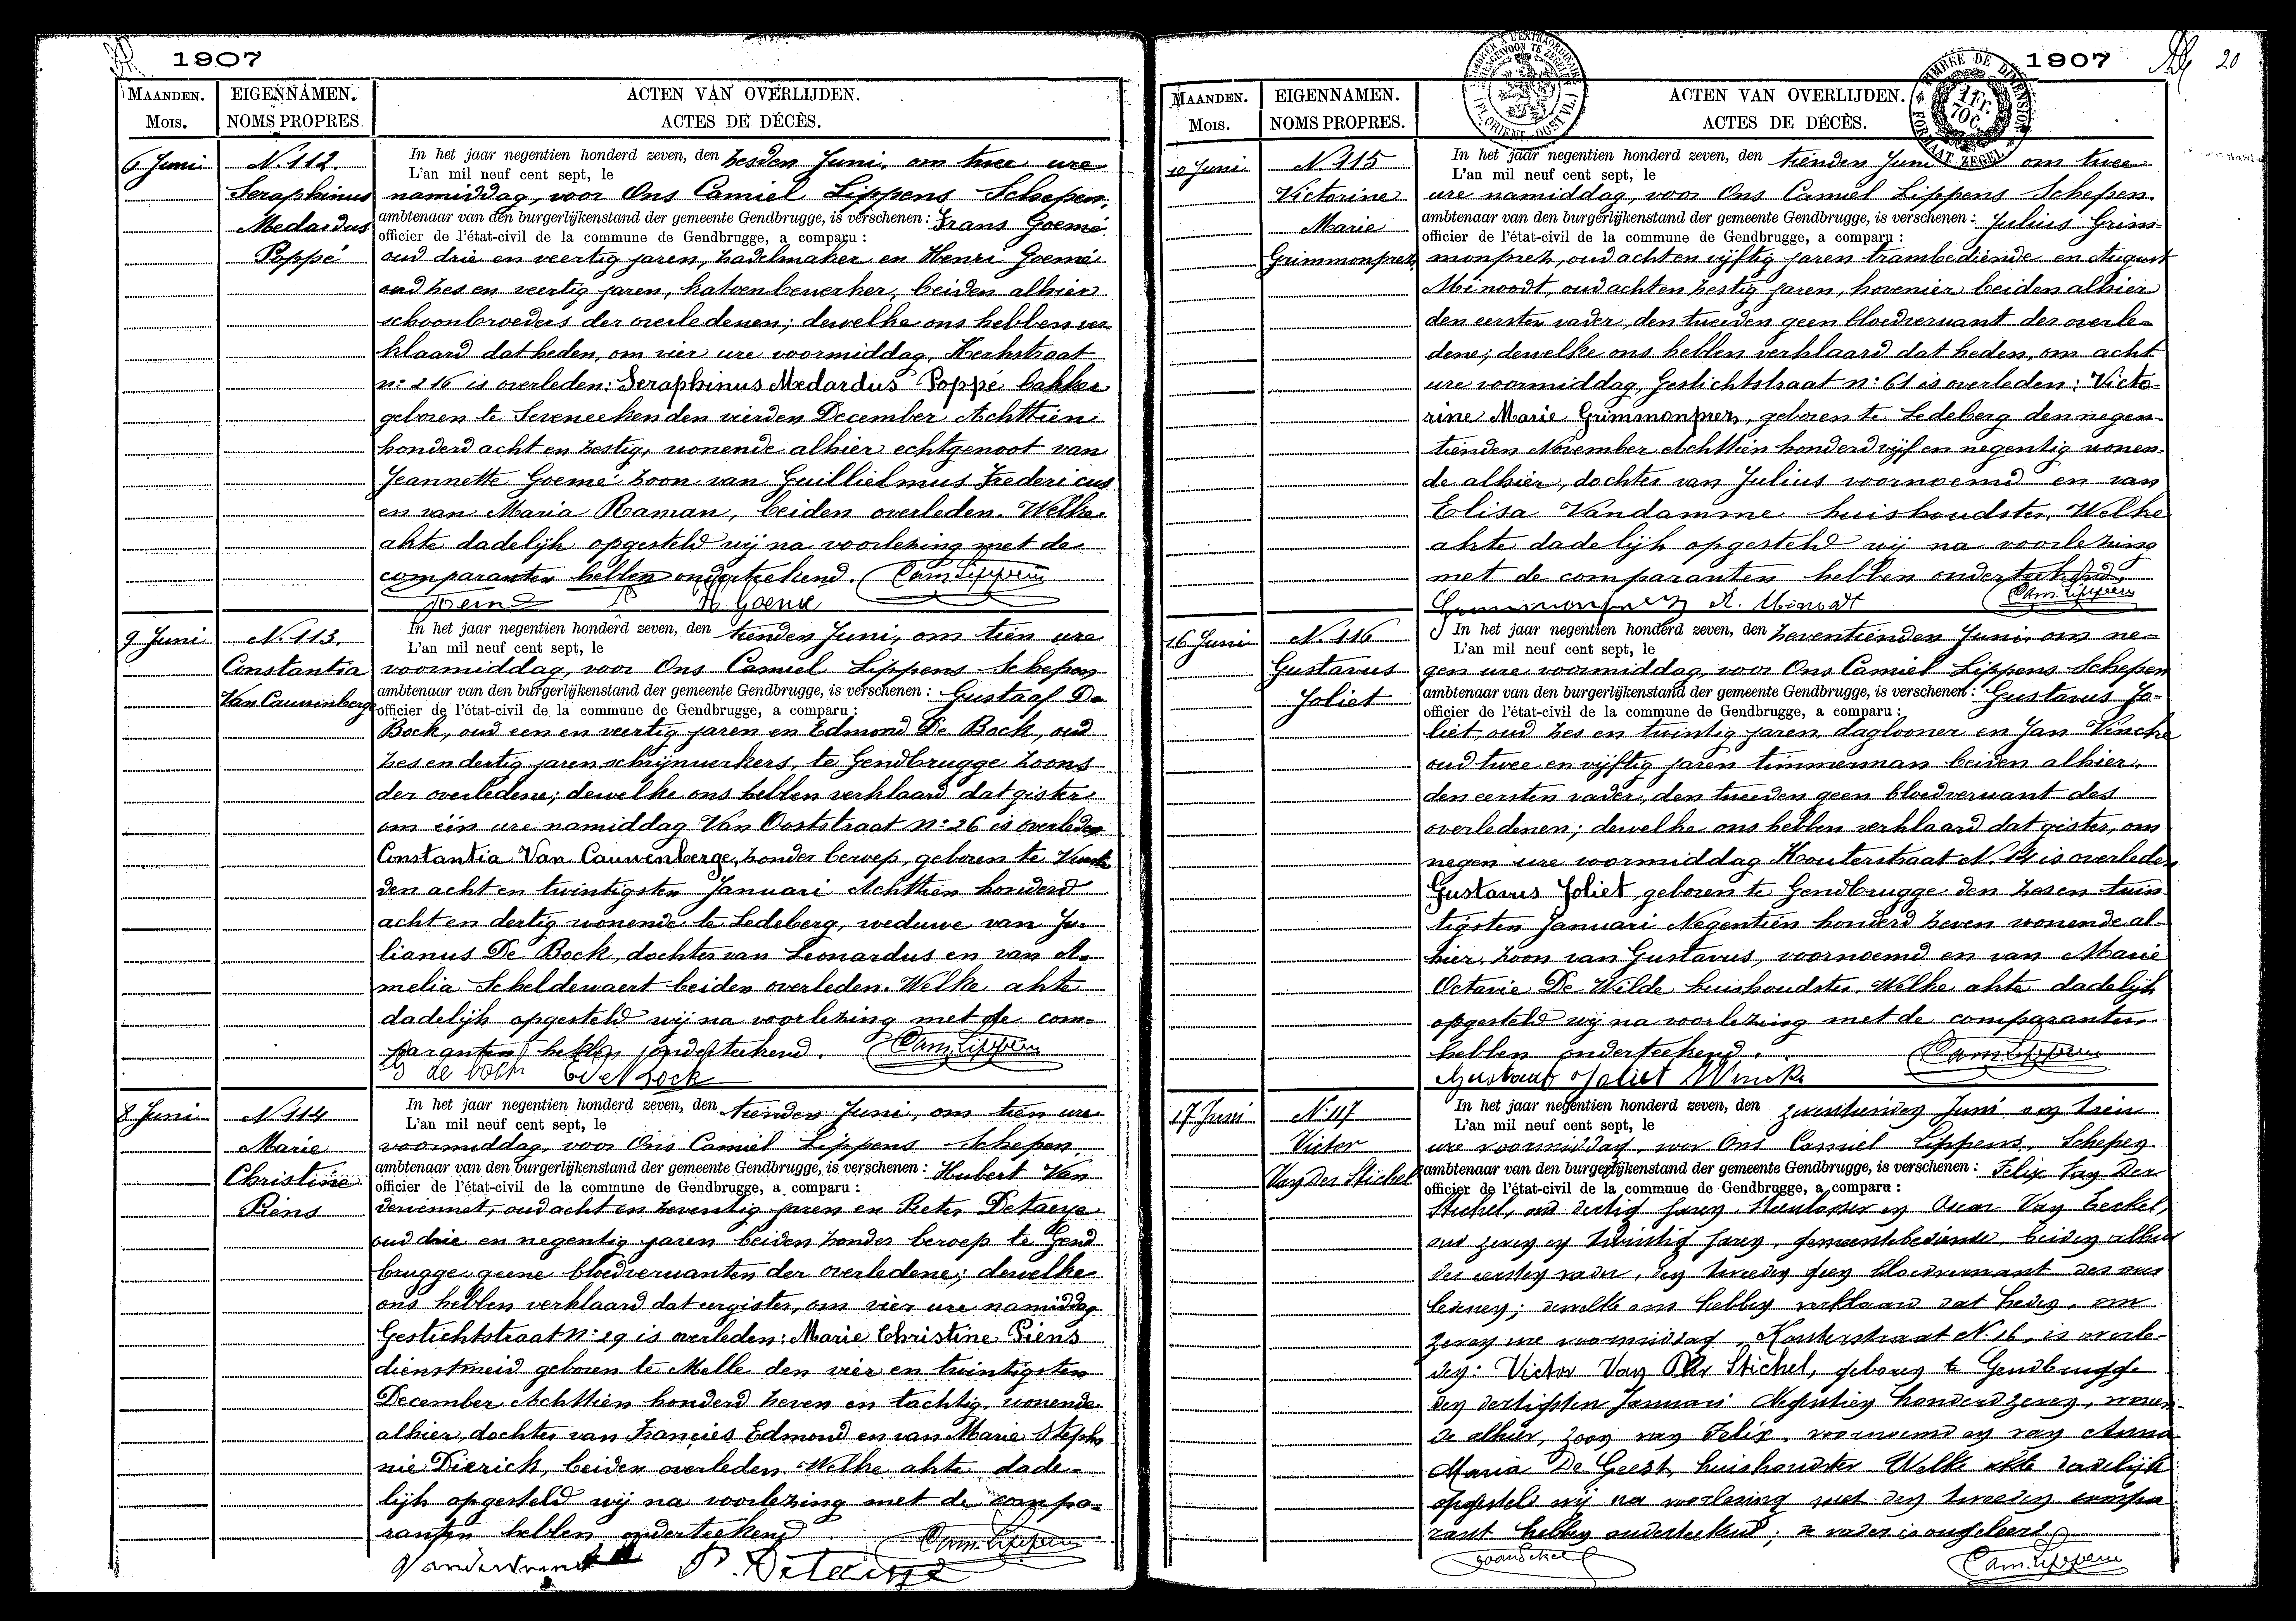 1907
MAANDEN.
Mois.
EIGENNAMEN.
NOMS PROPRES.
ACTEN VAN OVERLIJDEN.
ACTES DE DÉCÈS.
6 Juni
N. 112.
Seraphinus
Medardus
Poppé
In het jaar negentien honderd zeven, den zesden Juni, om twee ure
L'an mil neuf cent sept, le
namiddag, voor Ons Camiel Lippens Schepen,
ambtenaar van den burgerlijkenstand der gemeente Gendbrugge, is verschenen: Frans Goemé
officier de l'état-civil de la commune de Gendbrugge, a comparu:
oud drie en veertig jaren, zadelmaker en Henri Goemé
oud zes en veertig jaren, katoenbewerker, beiden alhier
schoonbroeders der overledenen; dewelke ons hebben ver-
klaard dat heden, om vier ure voormiddag, Kerkstraat
n: 216 is overleden: Seraphinus Medardus Poppé bakker
geboren te Seveneeken den vierden December Achttien
honderd acht en zestig, wonende alhier echtgenoot van
Jeannette Goemé zoon van Guillielmus Fredericus
en van Maria Raman, beiden overleden. Welke
akte dadelijk opgesteld wij na voorlezing met de
comparanten hebben onderteekend. Cam. Lippens
H Goemé
9 Juni
N. 113.
Constantia
Van Cauwenberge
In het jaar negentien honderd zeven, den tienden Juni, om tien ure
L'an mil neuf cent sept, le
voormiddag, voor Ons Camiel Lippens Schepen
ambtenaar van den burgerlijkenstand der gemeente Gendbrugge, is verschenen: Gustaaf De
officier de l'état-civil de la commune de Gendbrugge, a comparu:
Bock, oud een en veertig jaren en Edmond De Bock, oud
zes en dertig jaren schrijnwerkers, te Gendbrugge zoons
der overledene; dewelke ons hebben verklaard dat gister
om één ure namiddag Van Ooststraat n: 26 is overleden
Constantia Van Cauwenberge, zonder beroep, geboren te
den acht en twintigsten Januari Achttien honderd
acht en dertig wonende te Ledeberg, weduwe van Ju-
lianus De Bock, dochter van Leonardus en van A-
melia Scheldewaert beiden overleden. Welke akte
dadelijk opgesteld wij na voorlezing met de com-
paranten hebben onderteekend. Cam. Lippens
de bock Ed De Bock
8 Juni
N. 114
Marie
Christine
Piens
In het jaar negentien honderd zeven, den tienden Juni, om tien ure
L'an mil neuf cent sept, le
voormiddag, voor Ons Camiel Lippens Schepen,
ambtenaar van den burgerlijkenstand der gemeente Gendbrugge, is verschenen: Hubert Van
officier de l'état-civil de la commune de Gendbrugge, a comparu:
dewennet, oud acht en zeventig jaren en Pieter Detaeye
oud drie en negentig jaren beiden zonder beroep te Gend
brugge geene bloedverwanten der overledene; dewelke
ons hebben verklaard dat eergister, om vier ure namiddag
Gestichtstraat n: 29 is overleden: Marie Christine Piens
dienstmeid geboren te Melle den vier en twintigsten
December Achttien honderd zeven en tachtig, wonende
alhier, dochter van Francies Edmond en van Marie Stepha
nie Dierick, beiden overleden. Welke akte dade-
lijk opgesteld wij na voorlezing met de compa-
ranten hebben onderteekend Cam. Lippens
P. Detaeye
1907
20
TIMBRE DE DIMENSION
FORMAAT ZEGEL
1 FR. 70 C.
MAANDEN.
Mois.
EIGENNAMEN.
NOMS PROPRES.
ACTEN VAN OVERLIJDEN.
ACTES DE DÉCÈS.
10 Juni
N. 115
Victorine
Marie
Grimmonprez
In het jaar negentien honderd zeven, den tienden Juni om twee
L'an mil neuf cent sept, le
ure namiddag, voor Ons Camiel Lippens Schepen
ambtenaar van den burgerlijkenstand der gemeente Gendbrugge, is verschenen: Julius Grim-
officier de l'état-civil de la commune de Gendbrugge, a comparu:
monprez, oud acht en vijftig jaren trambediende en August
Minoodt, oud acht en zestig jaren, hovenier beiden alhier
den eersten vader, den tweeden geen bloedverwant der overle-
dene; dewelke ons hebben verklaard dat heden, om acht
ure voormiddag, Gestichtstraat n: 61 is overleden: Victo-
rine Marie Grimmonprez, geboren te Ledeberg den negen-
tienden November Achttien honderd vijf en negentig wonen-
de alhier, dochter van Julius voornoemd en van
Elisa Vandamme huishoudster. Welke
akte dadelijk opgesteld wij na voorlezing
met de comparanten hebben onderteekend.
Grimmonprez A. Minoodt Cam. Lippens
16 Juni
N. 116
Gustavus
Joliet
In het jaar negentien honderd zeven, den zeventienden Juni, om ne-
L'an mil neuf cent sept, le
gen ure voormiddag, voor Ons Camiel Lippens Schepen
ambtenaar van den burgerlijkenstand der gemeente Gendbrugge, is verschenen: Gustavus Jo-
officier de l'état-civil de la commune de Gendbrugge, a comparu:
liet, oud zes en twintig jaren, daglooner en Jan Vincke
oud twee en vijftig jaren timmerman beiden alhier,
den eersten vader, den tweeden geen bloedverwant des
overledenen; dewelke ons hebben verklaard dat gister, om
negen ure voormiddag Kouterstraat N. 14 is overleden
Gustavus Joliet, geboren te Gendbrugge den zes en twin
tigsten Januari Negentien honderd zeven wonende al-
hier, zoon van Gustavus, voornoemd en van Marie
Octavie De Wilde, huishoudster. Welke akte dadelijk
opgesteld wij na voorlezing met de comparanten
hebben onderteekend. Cam. Lippens
Gustaaf Joliet Vincke
17 Juni
N. 117
Victor
Van Der Stichel
In het jaar negentien honderd zeven, den zeventienden Juni om tien
L'an mil neuf cent sept, le
ure voormiddag, voor Ons Camiel Lippens, Schepen
ambtenaar van den burgerlijkenstand der gemeente Gendbrugge, is verschenen: Felix Van Der
officier de l'état-civil de la commune de Gendbrugge, a comparu:
Stichel, oud dertig jaren, en Oscar Van Eeckel,
oud zeven en twintig jaren, gemeentebediende, beiden alhier
den eersten vader, den tweeden geen bloedverwant des over
ledenen; dewelke ons hebben verklaard dat heden, om
zeven ure voormiddag, Kouterstraat N. 16, is overle-
den: Victor Van Der Stichel, geboren te Gendbrugge
den dertigsten Januari Negentien honderd zeven, wonen-
de alhier, zoon van Felix, voornoemd en van Anna
Maria De Geest, huishoudster. Welke akte dadelijk
opgesteld wij na voorlezing met den tweeden compa
rant hebben onderteekend; de vader is ongeleerd.
Cam. Lippens